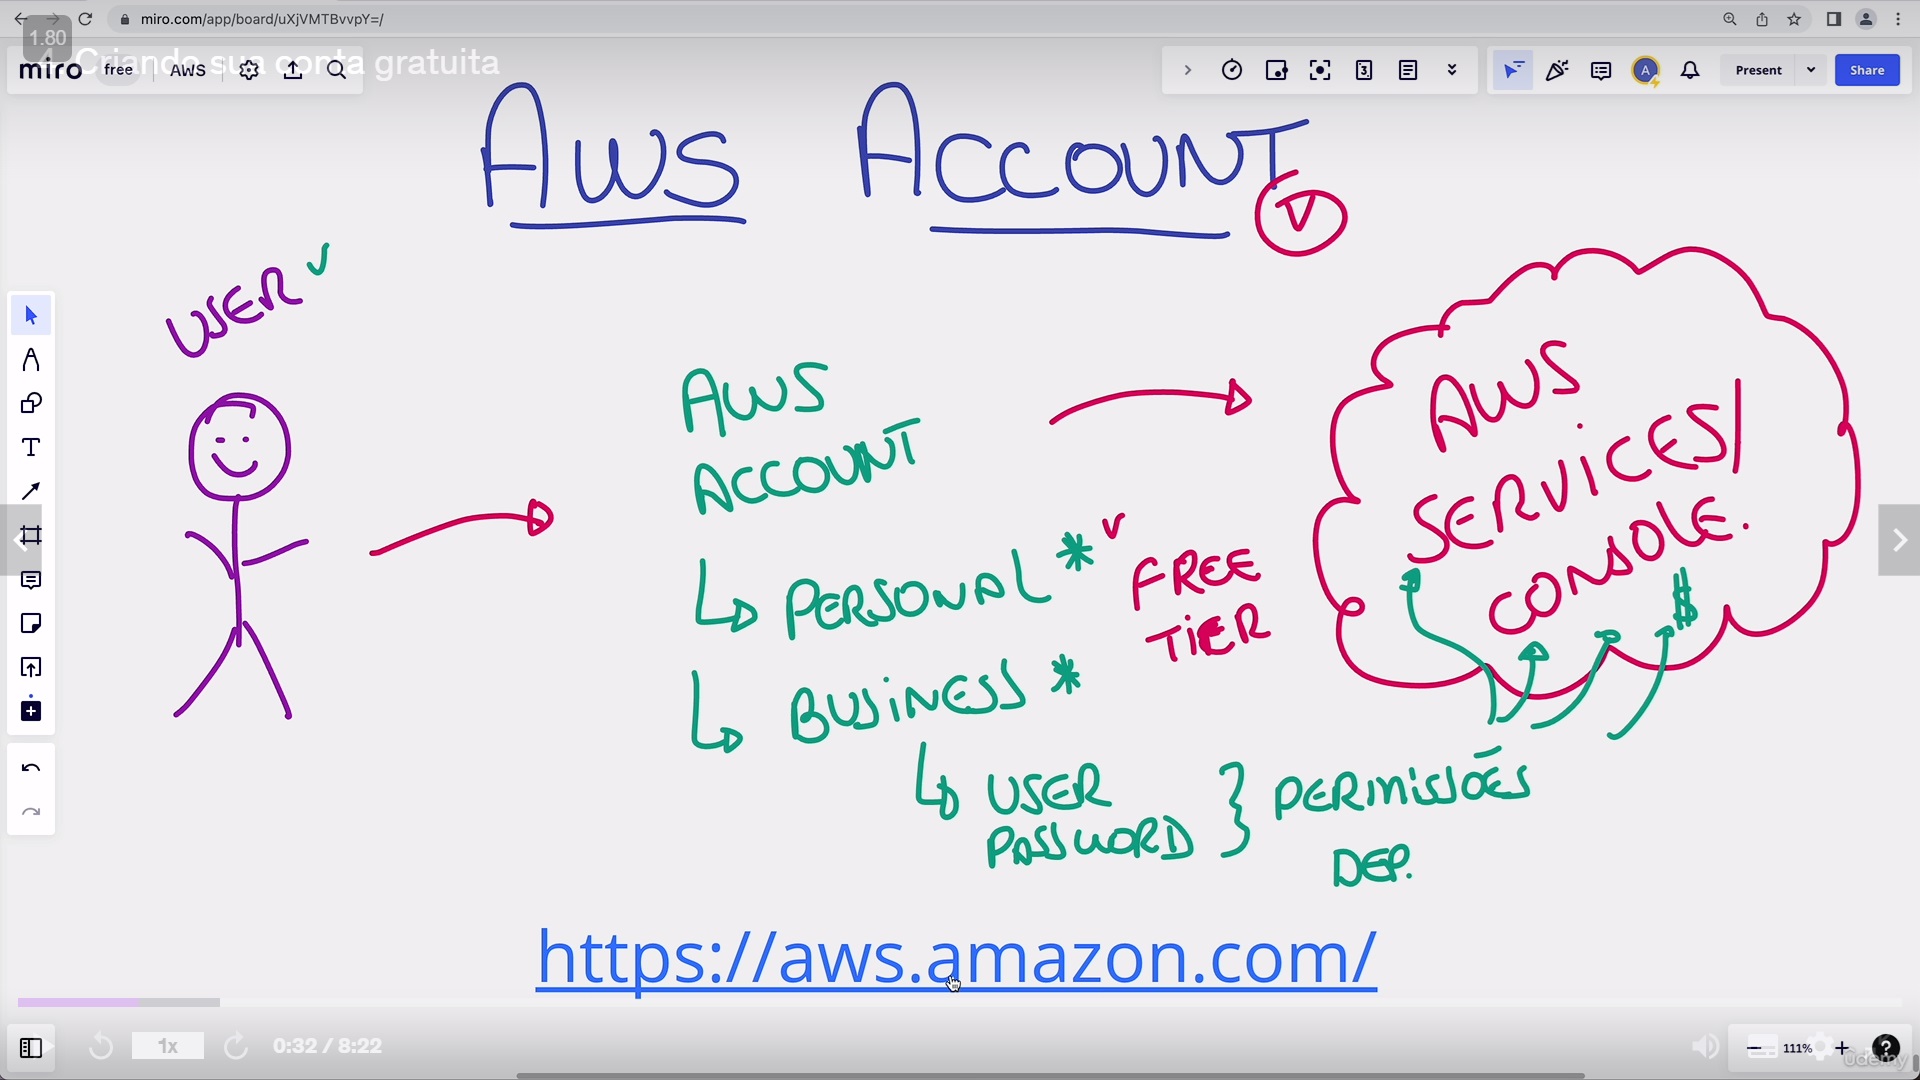 miro.com/app/board/uXjVMTBvvpY=/
1.80
4. Criando sua conta gratuita
miro free AWS
Present
Share
A
3
AWS ACCOUNT
V
USER
AWS
ACCOUNT
PERSONAL *
FREE
TIER
BUSINESS *
USER
PASSWORD } PERMISSÕES
DEP.
AWS
SERVICES/
CONSOLE.
$
https://aws.amazon.com/
1x
0:32 / 8:22
111%
?
ûdemy